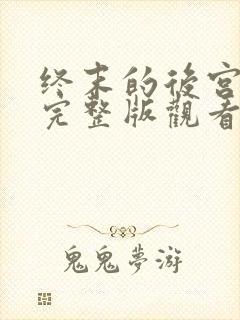 终末的後宫
完整版觀看
鬼鬼夢游